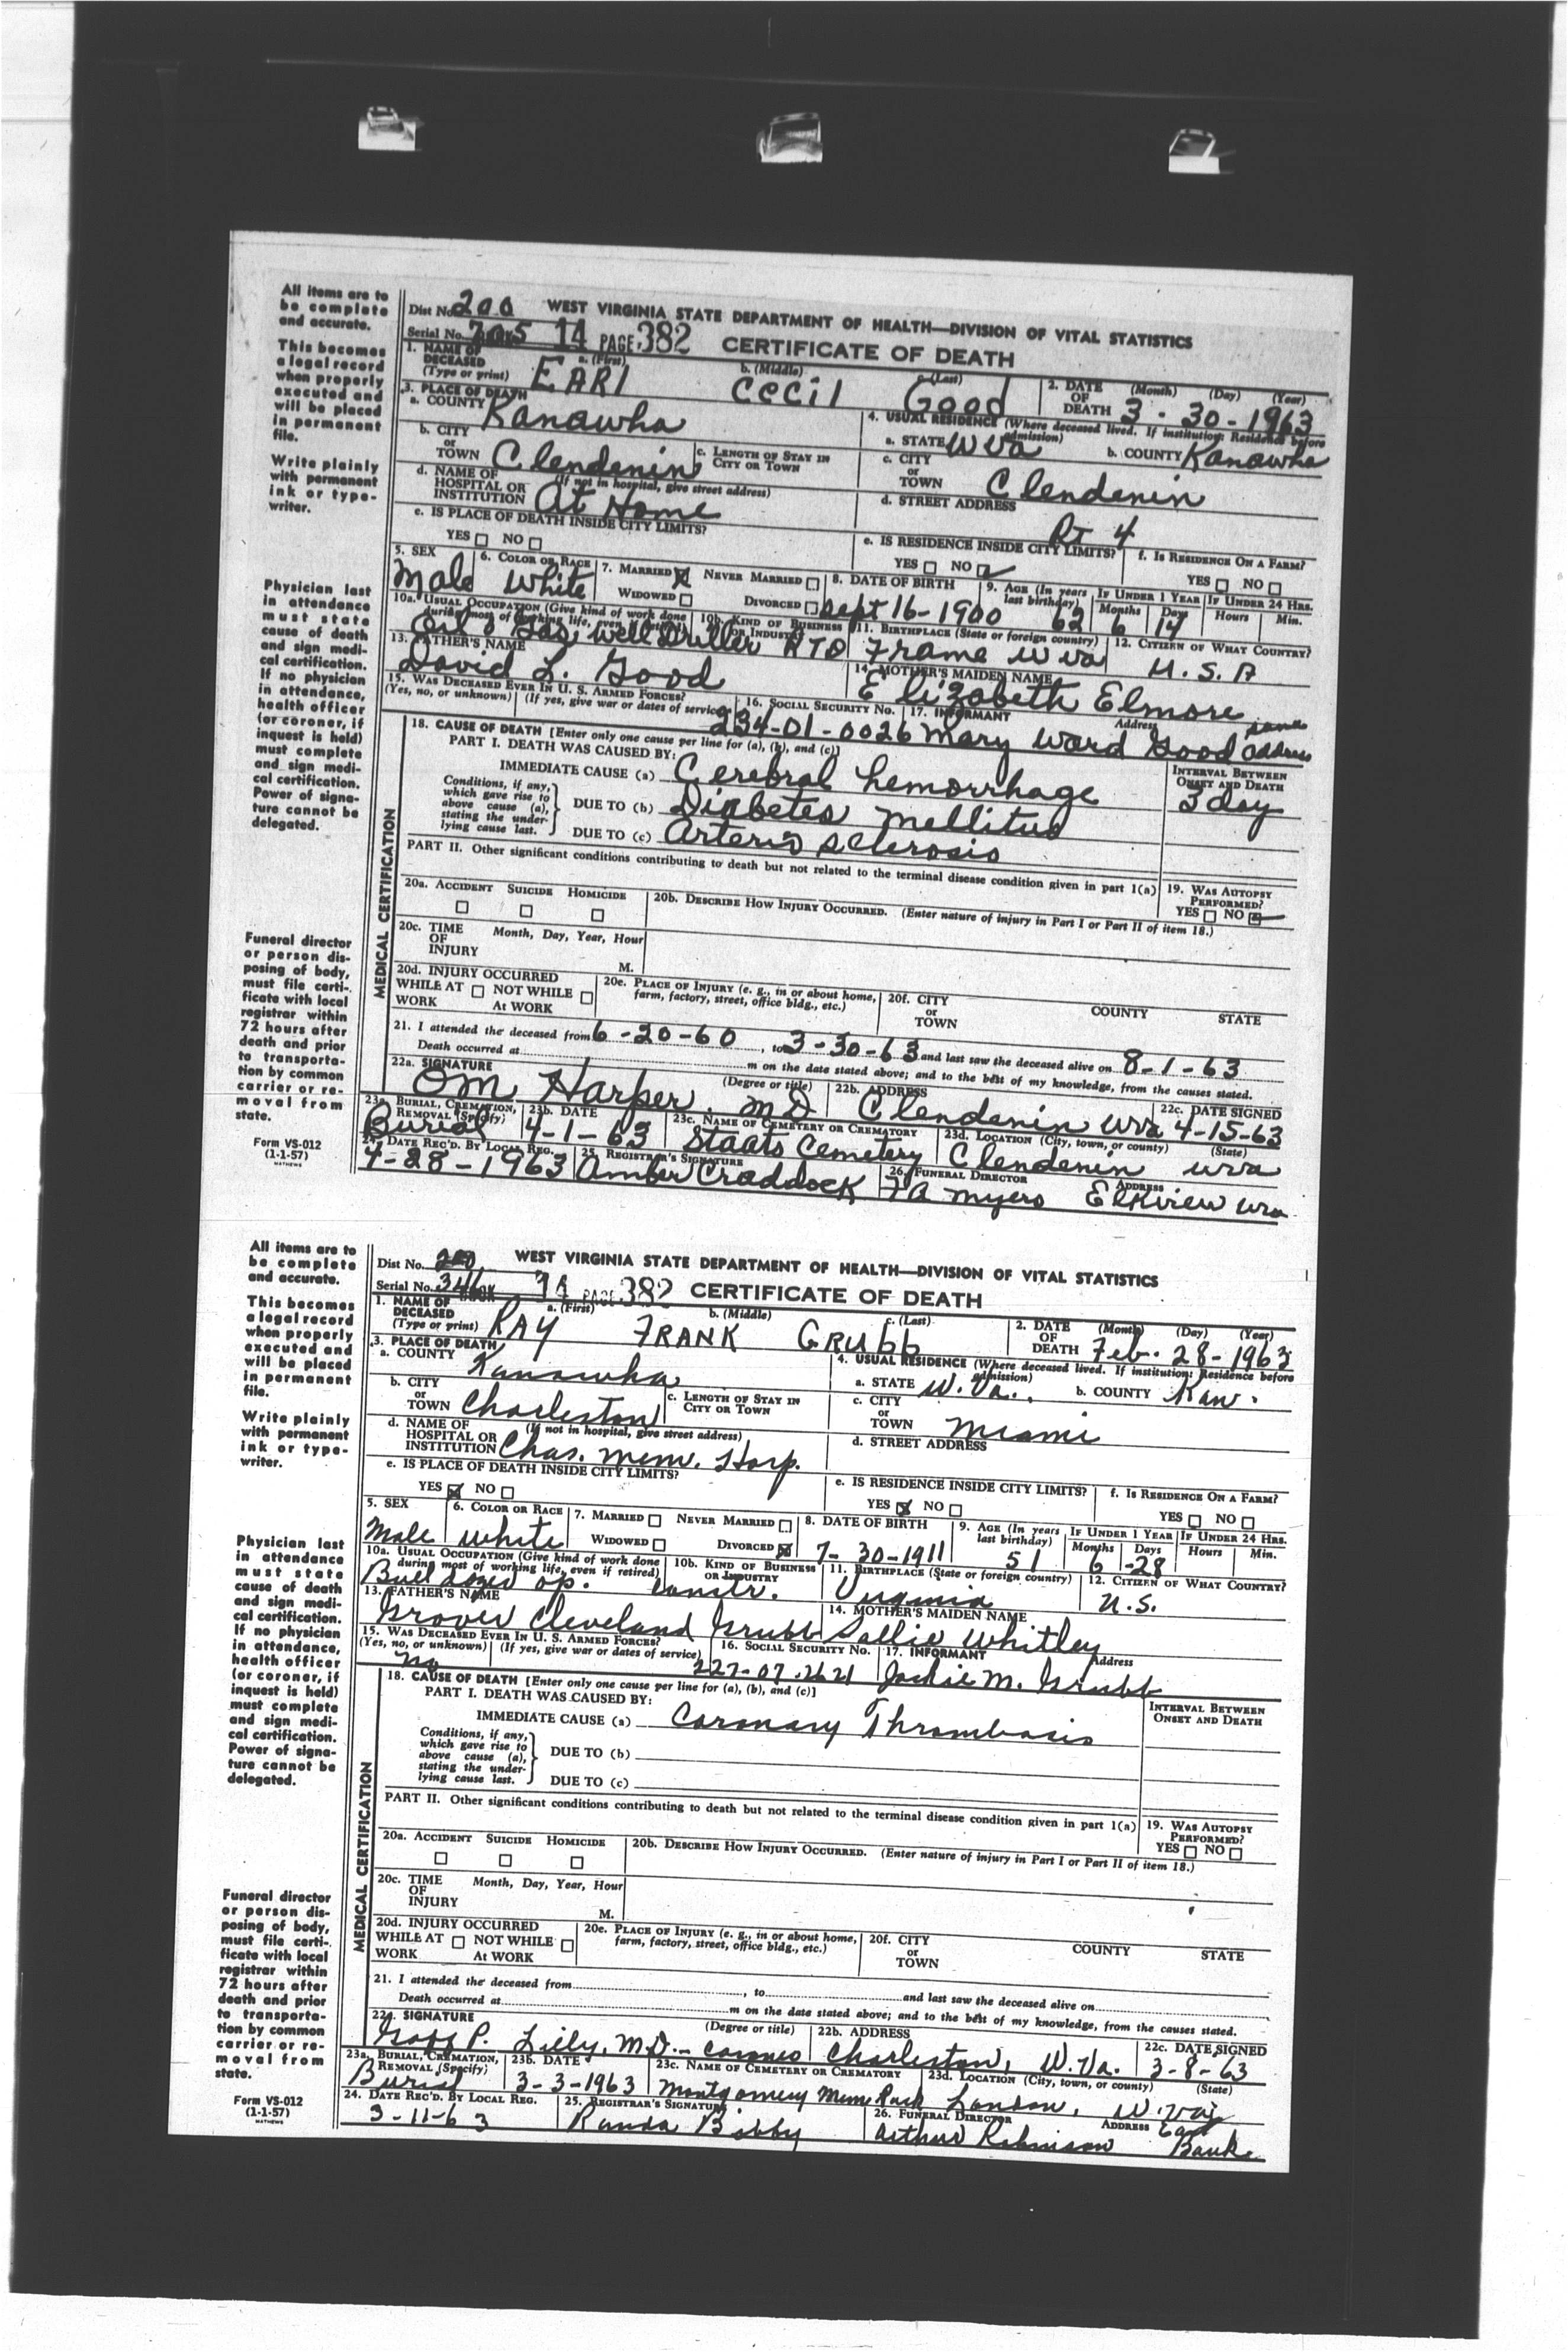 All items are to
be complete
and accurate.
This becomes
a legal record
when properly
executed and
will be placed
in permanent
file.
Write plainly
with permanent
ink or type-
writer.
Physician last
in attendance
must state
cause of death
and sign medi-
cal certification.
If no physician
in attendance,
health officer
(or coroner, if
inquest is held)
must complete
and sign medi-
cal certification.
Power of signa-
ture cannot be
delegated.
Funeral director
or person dis-
posing of body,
must file certi-
ficate with local
registrar within
72 hours after
death and prior
to transporta-
tion by common
carrier or re-
moval from
state.
Form VS-012
(1-1-57)
MATHEWS
Dist No. 200 WEST VIRGINIA STATE DEPARTMENT OF HEALTH—DIVISION OF VITAL STATISTICS
Serial No. 14 PAGE 382 CERTIFICATE OF DEATH
1. NAME OF DECEASED (Type or print) a. (First) EARl b. (Middle) CeCil c. (Last) Good 2. DATE OF DEATH (Month) (Day) (Year) 3 - 30 - 1963
3. PLACE OF DEATH 4. USUAL RESIDENCE (Where deceased lived. If institution: Residence before admission)
a. COUNTY Kanawha a. STATE W Va b. COUNTY Kanawha
b. CITY or TOWN Clendenin c. LENGTH OF STAY IN CITY OR TOWN c. CITY or TOWN Clendenin
d. NAME OF HOSPITAL OR INSTITUTION (If not in hospital, give street address) At Home d. STREET ADDRESS Rt 4
e. IS PLACE OF DEATH INSIDE CITY LIMITS? YES NO e. IS RESIDENCE INSIDE CITY LIMITS? YES NO f. IS RESIDENCE ON A FARM? YES NO
5. SEX Male 6. COLOR OR RACE White 7. MARRIED NEVER MARRIED WIDOWED DIVORCED 8. DATE OF BIRTH Sept 16-1900 9. AGE (In years last birthday) 62 IF UNDER 1 YEAR Months 6 Days 14 IF UNDER 24 HRS. Hours Min.
10a. USUAL OCCUPATION (Give kind of work done during most of working life, even if retired) Oil & Gas Well Driller 10b. KIND OF BUSINESS OR INDUSTRY RTD 11. BIRTHPLACE (State or foreign country) Frame W Va 12. CITIZEN OF WHAT COUNTRY? U.S.A
13. FATHER'S NAME David L. Good 14. MOTHER'S MAIDEN NAME Elizabeth Elmore
15. WAS DECEASED EVER IN U. S. ARMED FORCES? (Yes, no, or unknown) (If yes, give war or dates of service) 16. SOCIAL SECURITY NO. 234-01-0026 17. INFORMANT Mary Ward Good Address same address
MEDICAL CERTIFICATION
18. CAUSE OF DEATH [Enter only one cause per line for (a), (b), and (c)]
PART I. DEATH WAS CAUSED BY: INTERVAL BETWEEN ONSET AND DEATH
IMMEDIATE CAUSE (a) Cerebral hemorrhage 3 day
Conditions, if any, which gave rise to above cause (a), stating the underlying cause last. DUE TO (b) Diabetes mellitus
DUE TO (c) Arterio sclerosis
PART II. Other significant conditions contributing to death but not related to the terminal disease condition given in part 1(a) 19. WAS AUTOPSY PERFORMED? YES NO
20a. ACCIDENT SUICIDE HOMICIDE 20b. DESCRIBE HOW INJURY OCCURRED. (Enter nature of injury in Part I or Part II of item 18.)
20c. TIME OF INJURY Month, Day, Year, Hour M.
20d. INJURY OCCURRED WHILE AT WORK NOT WHILE AT WORK 20e. PLACE OF INJURY (e. g., in or about home, farm, factory, street, office bldg., etc.) 20f. CITY or TOWN COUNTY STATE
21. I attended the deceased from 6-20-60, to 3-30-63 and last saw the deceased alive on 8-1-63
Death occurred at m on the date stated above; and to the best of my knowledge, from the causes stated.
22a. SIGNATURE OM Harper. MD (Degree or title) 22b. ADDRESS Clendenin wva 22c. DATE SIGNED 4-15-63
23a. BURIAL, CREMATION, REMOVAL (Specify) Burial 23b. DATE 4-1-63 23c. NAME OF CEMETERY OR CREMATORY Staats Cemetery 23d. LOCATION (City, town, or county) (State) Clendenin wva
24. DATE REC'D. BY LOCAL REG. 4-28-1963 25. REGISTRAR'S SIGNATURE Amber Craddock 26. FUNERAL DIRECTOR ADDRESS FA Myers Elkview wva
All items are to
be complete
and accurate.
This becomes
a legal record
when properly
executed and
will be placed
in permanent
file.
Write plainly
with permanent
ink or type-
writer.
Physician last
in attendance
must state
cause of death
and sign medi-
cal certification.
If no physician
in attendance,
health officer
(or coroner, if
inquest is held)
must complete
and sign medi-
cal certification.
Power of signa-
ture cannot be
delegated.
Funeral director
or person dis-
posing of body,
must file certi-
ficate with local
registrar within
72 hours after
death and prior
to transporta-
tion by common
carrier or re-
moval from
state.
Form VS-012
(1-1-57)
MATHEWS
Dist No. 200 WEST VIRGINIA STATE DEPARTMENT OF HEALTH—DIVISION OF VITAL STATISTICS
Serial No. 346 BOOK 14 PAGE 382 CERTIFICATE OF DEATH
1. NAME OF DECEASED (Type or print) a. (First) RAY b. (Middle) FRANK c. (Last) GRUbb 2. DATE OF DEATH (Month) (Day) (Year) Feb. 28-1963
3. PLACE OF DEATH 4. USUAL RESIDENCE (Where deceased lived. If institution: Residence before admission)
a. COUNTY Kanawha a. STATE W. Va. b. COUNTY Kaw.
b. CITY or TOWN Charleston c. LENGTH OF STAY IN CITY OR TOWN c. CITY or TOWN Miami
d. NAME OF HOSPITAL OR INSTITUTION (If not in hospital, give street address) Chas. Mem. Hosp. d. STREET ADDRESS
e. IS PLACE OF DEATH INSIDE CITY LIMITS? YES NO e. IS RESIDENCE INSIDE CITY LIMITS? YES NO f. IS RESIDENCE ON A FARM? YES NO
5. SEX Male 6. COLOR OR RACE White 7. MARRIED NEVER MARRIED WIDOWED DIVORCED 8. DATE OF BIRTH 7-30-1911 9. AGE (In years last birthday) 51 IF UNDER 1 YEAR Months 6 Days -28 IF UNDER 24 HRS. Hours Min.
10a. USUAL OCCUPATION (Give kind of work done during most of working life, even if retired) Bull dozed op. 10b. KIND OF BUSINESS OR INDUSTRY Constr. 11. BIRTHPLACE (State or foreign country) Virginia 12. CITIZEN OF WHAT COUNTRY? U.S.
13. FATHER'S NAME Grover Cleveland Grubb 14. MOTHER'S MAIDEN NAME Sallie Whitley
15. WAS DECEASED EVER IN U. S. ARMED FORCES? (Yes, no, or unknown) (If yes, give war or dates of service) No 16. SOCIAL SECURITY NO. 227-07-2621 17. INFORMANT Jackie M. Grubb Address
MEDICAL CERTIFICATION
18. CAUSE OF DEATH [Enter only one cause per line for (a), (b), and (c)]
PART I. DEATH WAS CAUSED BY: INTERVAL BETWEEN ONSET AND DEATH
IMMEDIATE CAUSE (a) Coronary Thrombosis
Conditions, if any, which gave rise to above cause (a), stating the underlying cause last. DUE TO (b)
DUE TO (c)
PART II. Other significant conditions contributing to death but not related to the terminal disease condition given in part 1(a) 19. WAS AUTOPSY PERFORMED? YES NO
20a. ACCIDENT SUICIDE HOMICIDE 20b. DESCRIBE HOW INJURY OCCURRED. (Enter nature of injury in Part I or Part II of item 18.)
20c. TIME OF INJURY Month, Day, Year, Hour M.
20d. INJURY OCCURRED WHILE AT WORK NOT WHILE AT WORK 20e. PLACE OF INJURY (e. g., in or about home, farm, factory, street, office bldg., etc.) 20f. CITY or TOWN COUNTY STATE
21. I attended the deceased from , to and last saw the deceased alive on
Death occurred at m on the date stated above; and to the best of my knowledge, from the causes stated.
22a. SIGNATURE P. Lilly, M.D. - Coroner (Degree or title) 22b. ADDRESS Charleston, W. Va. 22c. DATE SIGNED 3-8-63
23a. BURIAL, CREMATION, REMOVAL (Specify) Burial 23b. DATE 3-3-1963 23c. NAME OF CEMETERY OR CREMATORY Montgomery Mem Park 23d. LOCATION (City, town, or county) (State) London, W. Va
24. DATE REC'D. BY LOCAL REG. 3-11-63 25. REGISTRAR'S SIGNATURE Randa Bibby 26. FUNERAL DIRECTOR Arthur Robinson ADDRESS East Bank